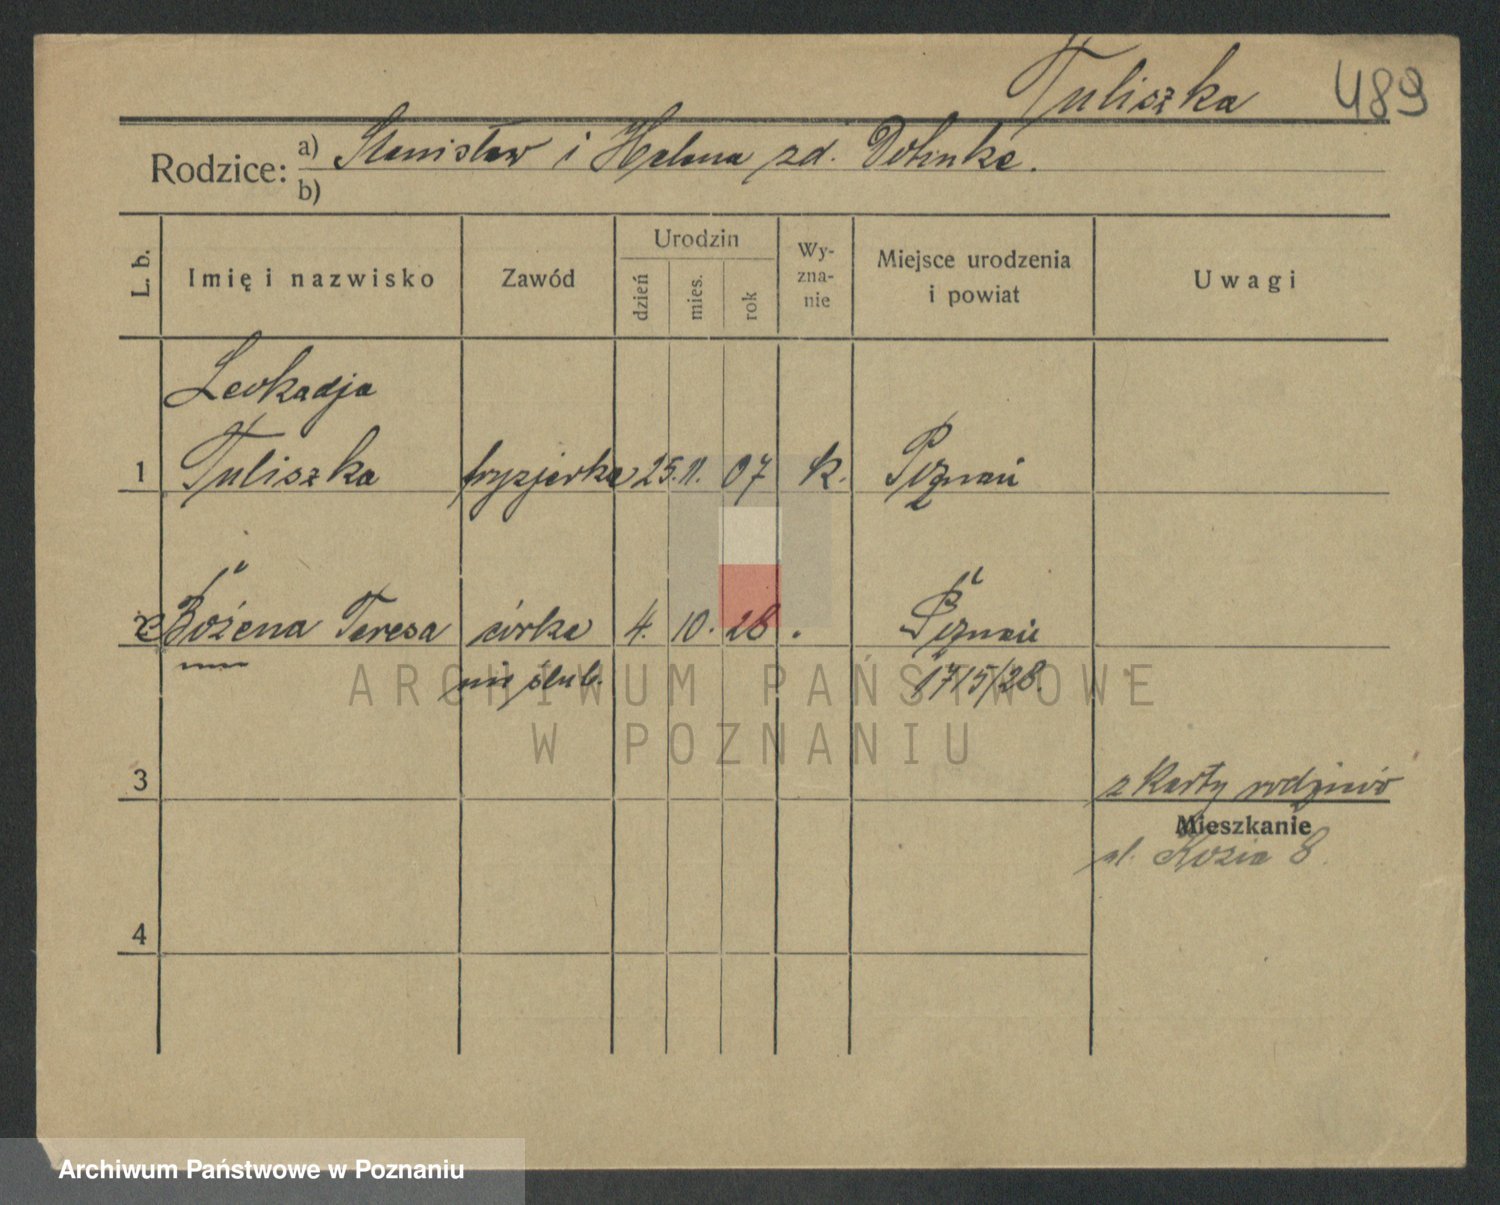 Tuliszka 489
Rodzice: a) Stanisław i Helena zd. Dolinke.
b)
L. b. Imię i nazwisko Zawód Urodzin dzień mies. rok Wy-zna-nie Miejsce urodzenia i powiat Uwagi
Leokadja
1 Tuliszka fryzjerka 25. 11. 07 k. Poznań
2 Bożena Teresa córka 4. 10. 28 Poznań
nie ślub. 1715/28.
ARCHIWUM PAŃSTWOWE
W POZNANIU
3 z karty
Mieszkanie
ul. Kozia 8.
4
Archiwum Państwowe w Poznaniu